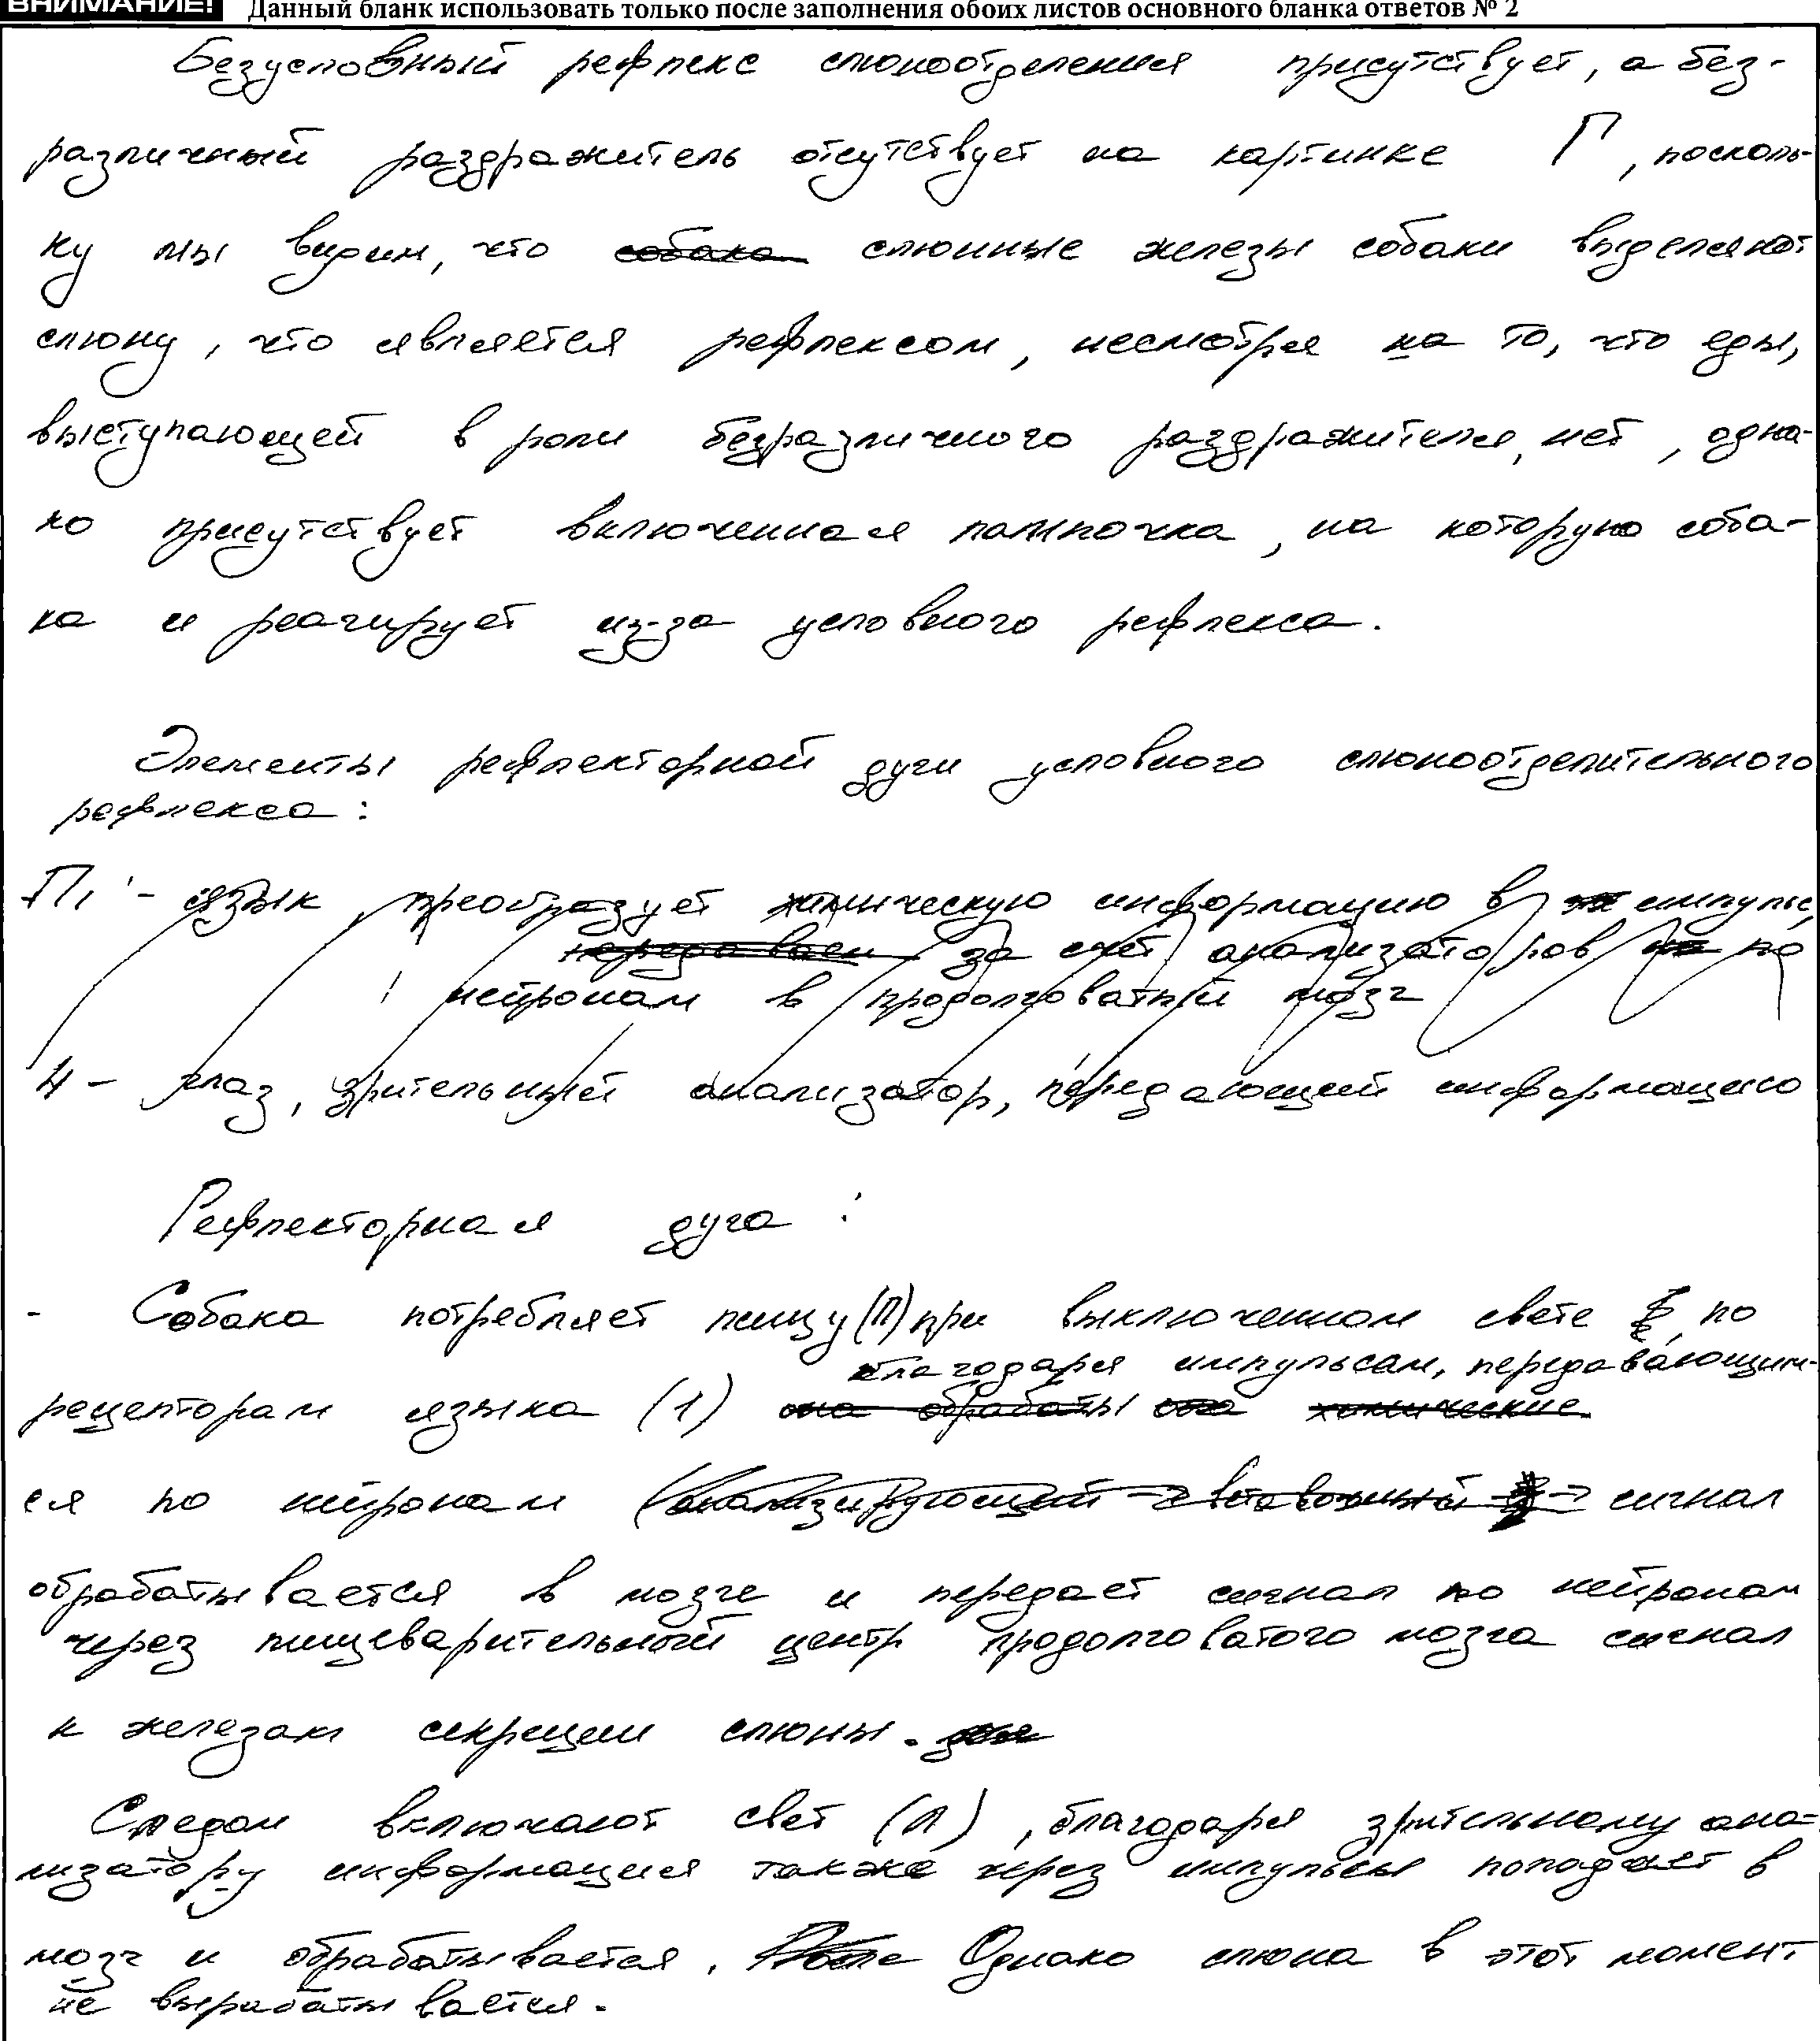 ВНИМАНИЕ! Данный бланк использовать только после заполнения обоих листов основного бланка ответов № 2
Безусловный рефлекс слюноотделения присутствует, а без-
различный раздражитель отсутствует на картинке Г, посколь-
ку мы видим, что собака слюнные железы собаки выделяют
слюну, что является рефлексом, несмотря на то, что еды,
выступающей в роли безразличного раздражителя, нет, одна-
ко присутствует включенная лампочка, на которую соба-
ка и реагирует из-за условного рефлекса.
Элементы рефлекторной дуги условного слюноотделительного
рефлекса:
П, - язык, преобразует химическую информацию в импульс,
передаваем за счёт анализаторов на по
нейронам в продолговатый мозг
4 - глаз, зрительный анализатор, передающий информацию
Рефлекторная дуга:
- Собака потребляет пищу (П) при выключенном свете, по
благодаря импульсам, передавающим-
рецепторам языка (1) она обрабаты она химические
ся по нейронам (анализирующий → вставочный → сигнал
обрабатывается в мозге и передает сигнал по нейронам
через пищеварительный центр продолговатого мозга сигнал
к железам секреции слюны.
Следом включают свет (Л), благодаря зрительному ана-
лизатору информация также через импульсы попадает в
мозг и обрабатывается. После Однако слюна в этот момент
не вырабатывается.